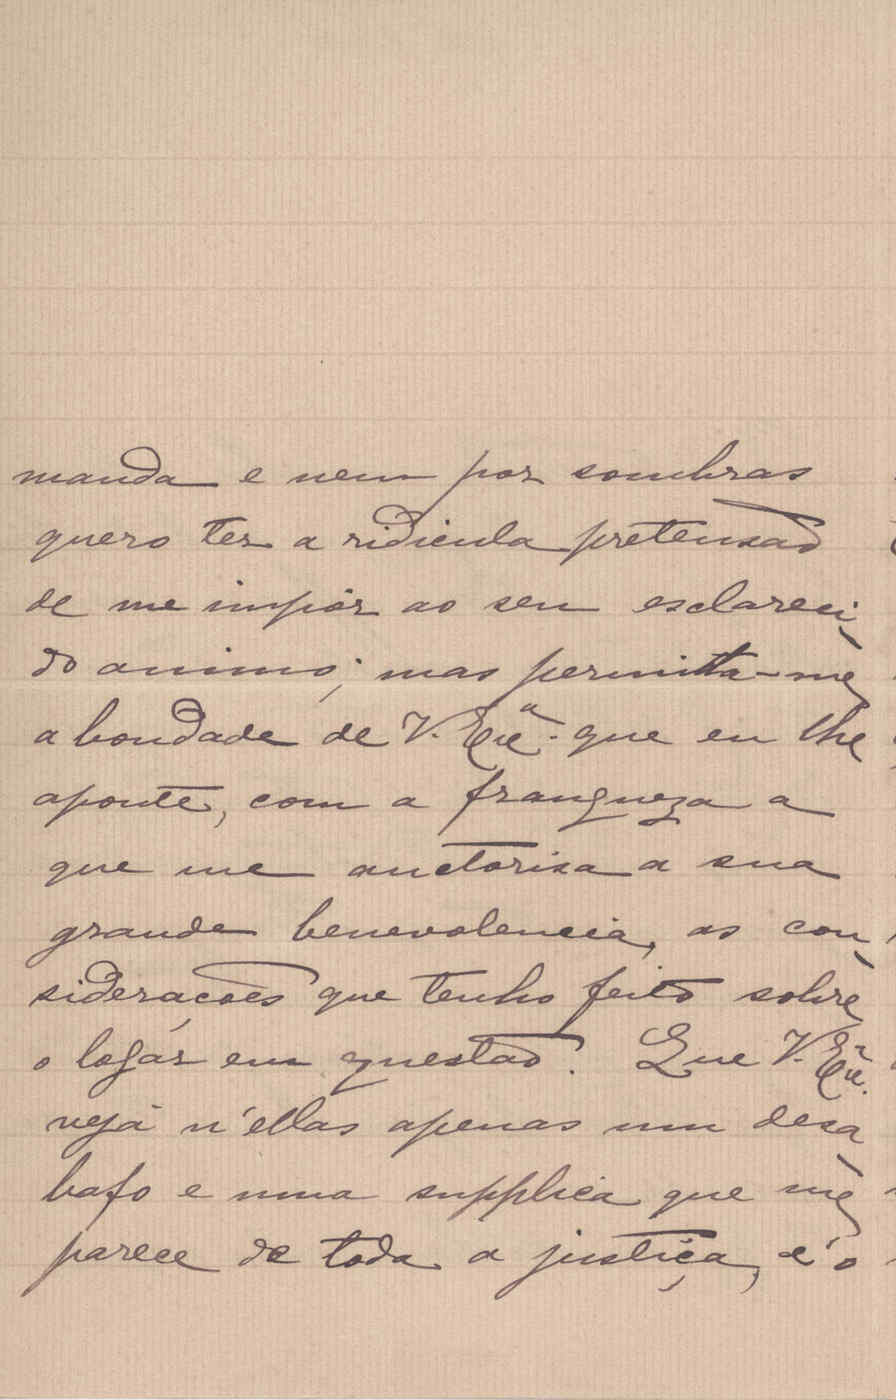 manda e nem por sombras
quero ter a ridicula pretensão
de me impôr ao seu esclareci-
do animo; mas permitta-me
a bondade de V. Exª. que eu lhe
aponte, com a franqueza a
que me auctorisa a sua
grande benevolencia, as con-
siderações que tenho feito sobre
o logár em questão. Que V. Exª.
veja n'ellas apenas um desa-
bafo e uma supplica que me
parece de toda a justiça, é o